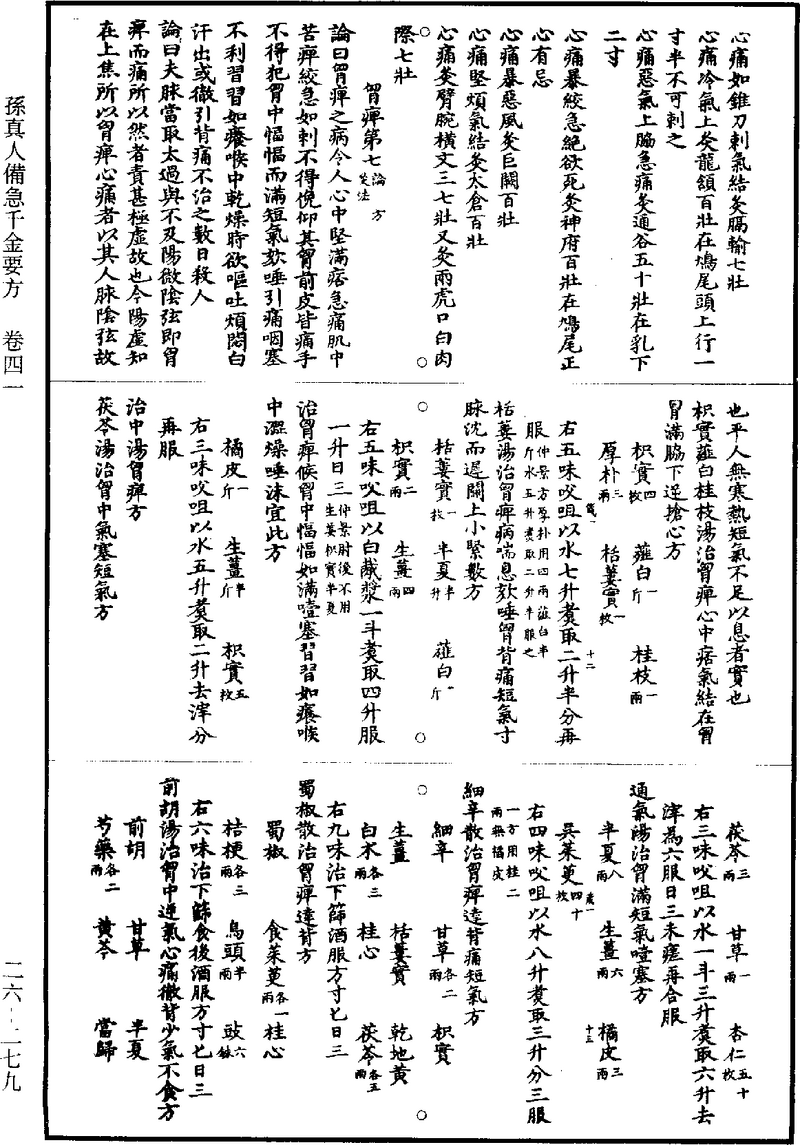 孫真人備急千金要方　卷四一
二六－二七九
心痛如錐刀刺氣結灸膈輸七壯
心痛冷氣上灸龍頷百壯在鳩尾頭上行一
寸半不可刺之
心痛惡氣上脇急痛灸通谷五十壯在乳下
二寸
心痛暴絞急絕欲死灸神府百壯在鳩尾正
心有忌
心痛暴惡風灸巨闕百壯
心痛堅煩氣結灸太倉百壯
心痛灸臂腕橫文三七壯又灸兩虎口白肉
際七壯
胷痺第七論　方灸法
論曰胷痺之病令人心中堅滿痞急痛肌中
苦痺絞急如刺不得俛仰其胷前皮皆痛手
不得犯胷中愊愊而滿短氣欬唾引痛咽塞
不利習習如癢喉中乾燥時欲嘔吐煩悶白
汗出或徹引背痛不治之數日殺人
論曰夫脉當取太過與不及陽微陰弦即胷
痺而痛所以然者責其極虛故也今陽虛知
在上焦所以胷痺心痛者以其人脉陰弦故
也平人無寒熱短氣不足以息者實也
枳實薤白桂枝湯治胷痺心中痞氣結在胷
胷滿脇下逆搶心方
枳實四枚　薤白一斤　桂枝一兩
厚朴三兩　栝蔞實一枚
右五味㕮咀以水七升煑取二升半分再
服仲景方厚朴用四兩薤白半斤水五升煑取二升半服之
栝蔞湯治胷痺病喘息欬唾胷背痛短氣寸
脉沈而遲關上小緊數方
栝蔞實一枚　半夏半升　薤白一斤
枳實二兩　生薑四兩
右五味㕮咀以白酨漿一斗煑取四升服
一升日三仲景肘後不用生薑枳實半夏
治胷痺候胷中愊愊如滿噎塞習習如癢喉
中澀燥唾沫宜此方
橘皮一斤　生薑半斤　枳實五枚
右三味㕮咀以水五升煑取二升去滓分
再服
治中湯胷痺方
茯苓湯治胷中氣塞短氣方
茯苓三兩　甘草一兩　杏仁五十枚
右三味㕮咀以水一斗三升煑取六升去
滓爲六服日三未瘥再合服
通氣湯治胷滿短氣噎塞方
半夏八兩　生薑六兩　橘皮三兩
吳茱萸四十枚
右四味㕮咀以水八升煑取三升分三服
一方用桂二兩無橘皮
細辛散治胷痺達背痛短氣方
細辛　甘草各二兩　枳實
生薑　栝蔞實　乾地黃
白朮各三兩　桂心　茯苓各五兩
右九味治下篩酒服方寸匕日三
蜀椒散治胷痺達背方
蜀椒　食茱萸各一兩　桂心
桔梗各三兩　烏頭半兩　豉六銖
右六味治下篩食後酒服方寸匕日三
前胡湯治胷中逆氣心痛徹背少氣不食方
前胡　甘草　半夏
芍藥各二兩　黃芩　當歸